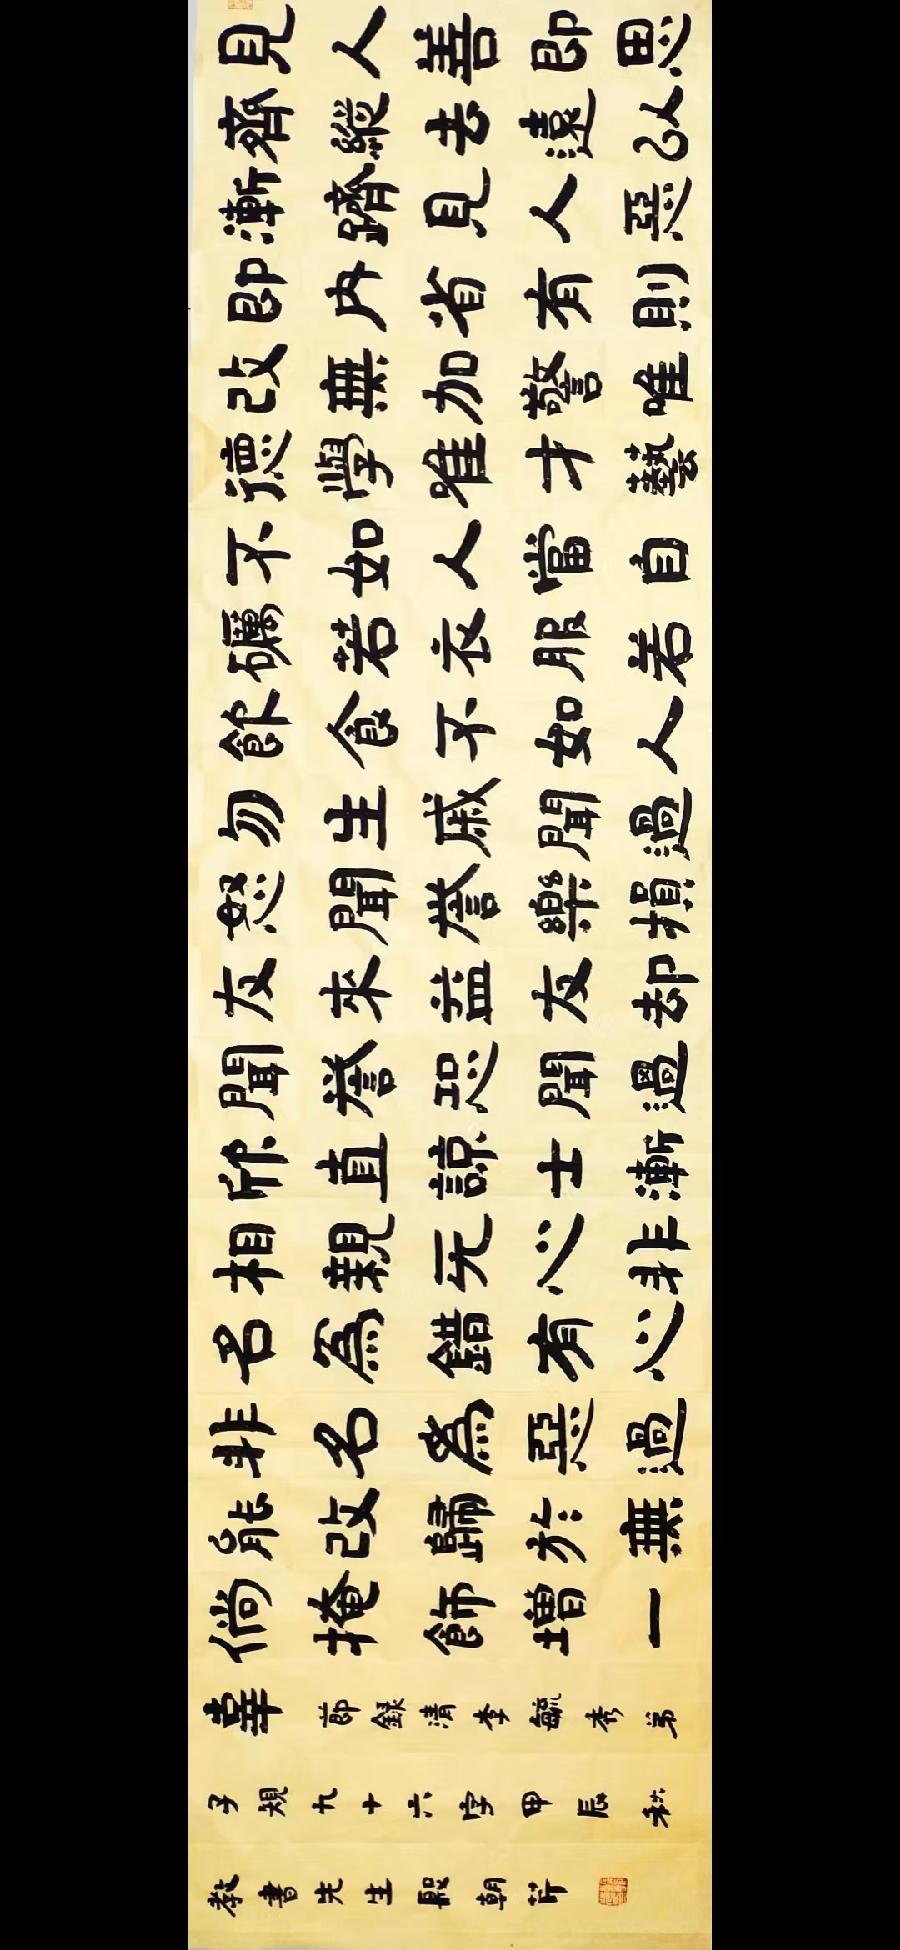 見人善即思
齊縱去遠以
漸躋見人惡
即内省有則
改無加警唯
德學唯才藝
不如人當自
礪若衣服若
飲食不如人
勿生戚聞過
怒聞譽樂損
友來益友却
聞譽恐聞過
欣直諒士漸
相親无心非
名為錯有心
非名為惡過
能改歸於無
倘掩飾增一
辜 節録清李毓秀弟
子規九十六字甲辰秋
教書先生殷朝芹